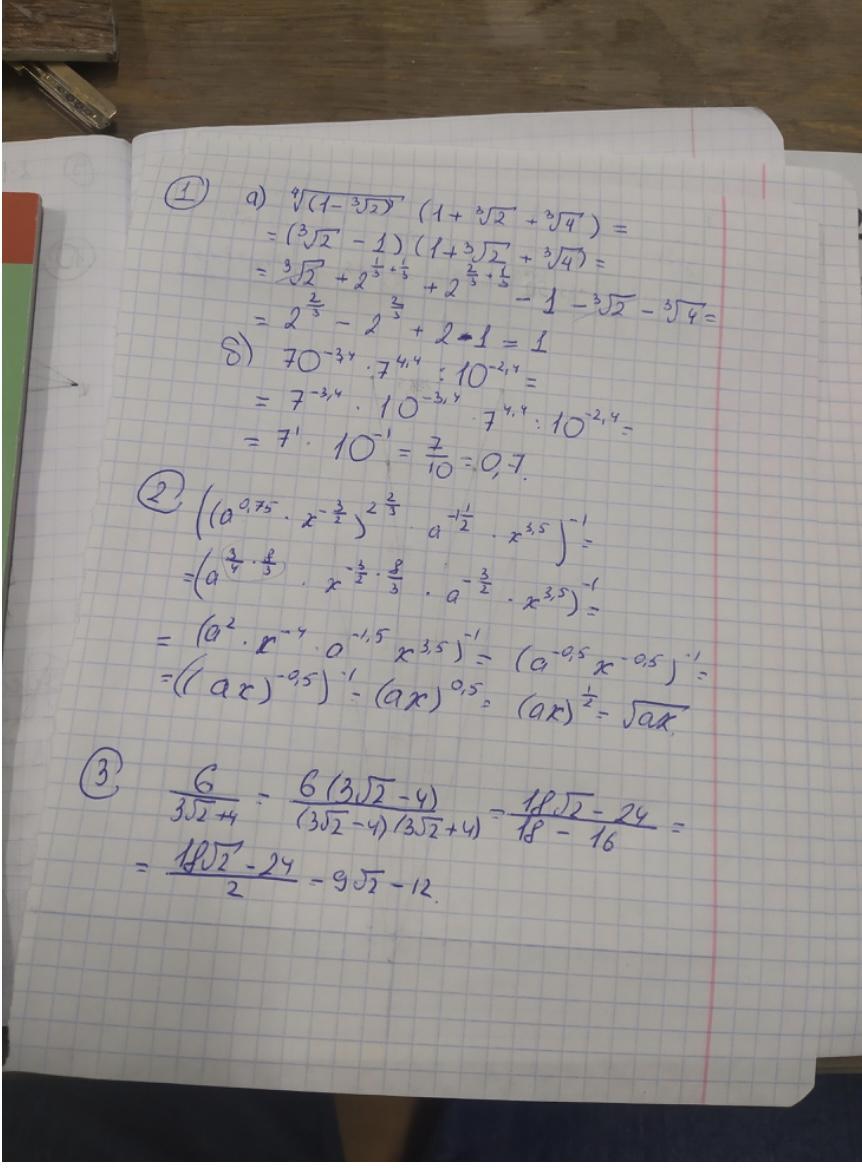 ① а) ⁴√(1-³√2)⁴ (1+ ³√2 + ³√4) =
= (³√2 - 1)(1+³√2 + ³√4) =
= ³√2 + 2^(1/3+1/3) + 2^(2/3+1/3) - 1 - ³√2 - ³√4 =
= 2^(2/3) - 2^(2/3) + 2 - 1 = 1
б) 70^(-3,4) · 7^(4,4) : 10^(-2,4) =
= 7^(-3,4) · 10^(-3,4) · 7^(4,4) : 10^(-2,4) =
= 7^1 · 10^(-1) = 7/10 = 0,7.
② ((a^(0,75) · x^(-3/2))^(2 2/3) · a^(-1 1/2) · x^(3,5))^(-1) =
= (a^(3/4 · 8/3) · x^(-3/2 · 8/3) · a^(-3/2) · x^(3,5))^(-1) =
= (a^2 · x^(-4) · a^(-1,5) x^(3,5))^(-1) = (a^(-0,5) x^(-0,5))^(-1) =
= ((ax)^(-0,5))^(-1) = (ax)^(0,5) = (ax)^(1/2) = √ax.
③ 6/(3√2+4) = 6(3√2-4)/((3√2-4)(3√2+4)) = (18√2-24)/(18-16) =
= (18√2-24)/2 = 9√2-12.